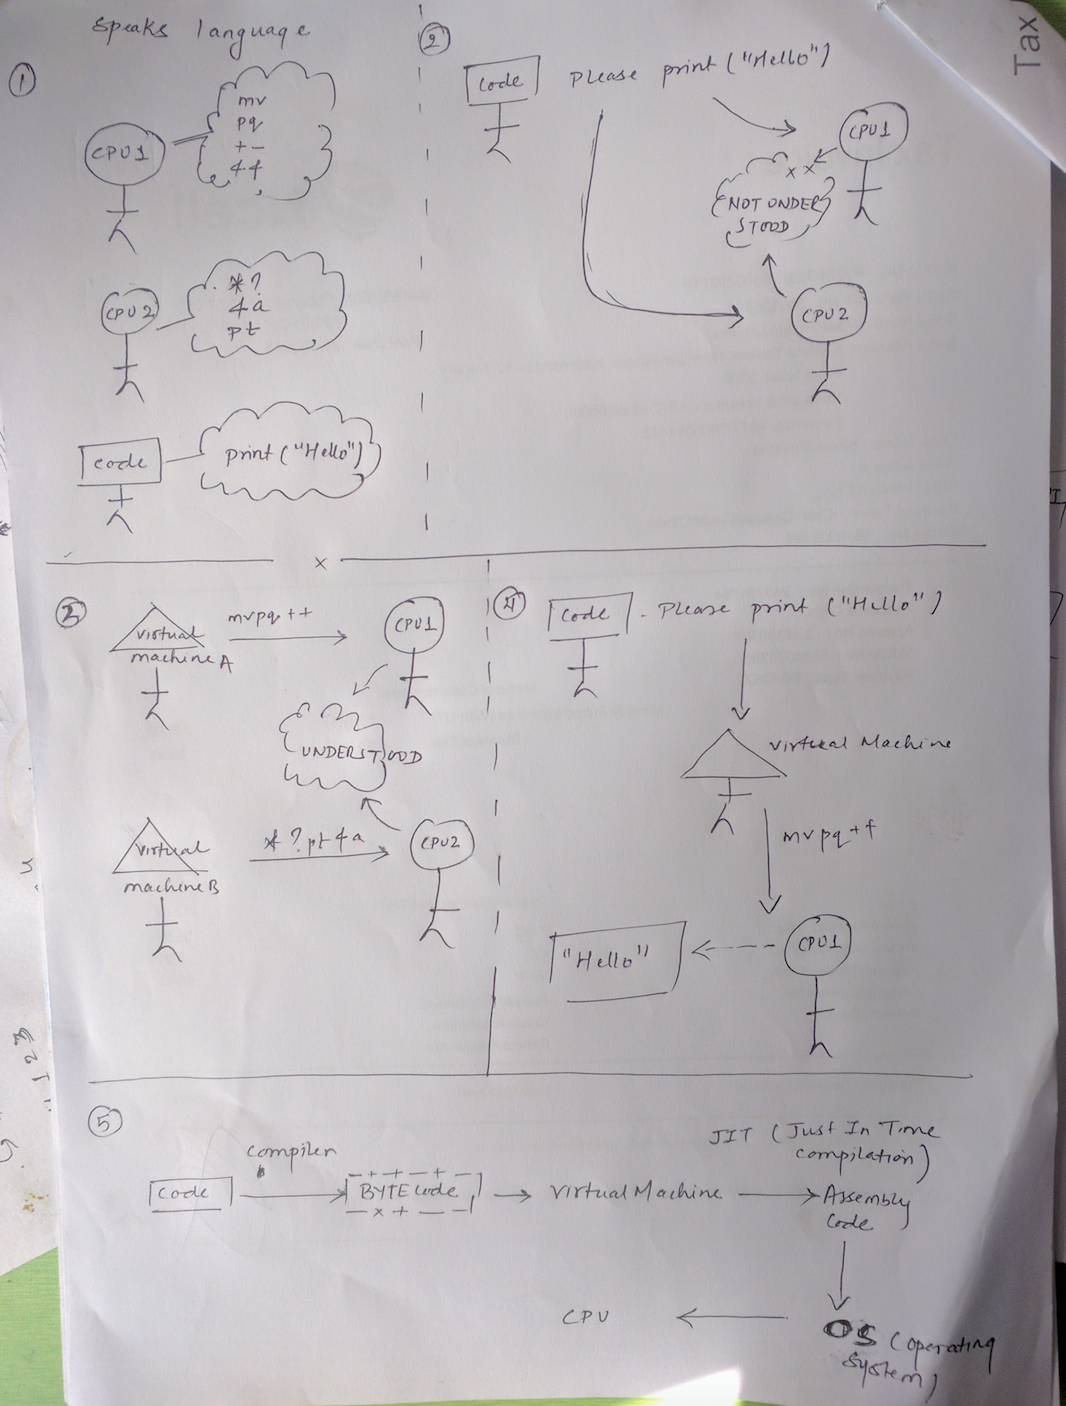 speaks language
①
CPU1
mv
pq
+-
44
CPU2
*?
4a
pt
code
print ("Hello")
②
Code
Please print ("Hello")
CPU1
xx
NOT UNDER
STOOD
CPU2
Tax
③
virtual
machine A
mvpq++
CPU1
UNDERSTOOD
virtual
machine B
*?pt4a
CPU2
④
Code
- Please print ("Hello")
virtual Machine
mvpq++
CPU1
"Hello"
⑤
Code
compiler
BYTE Code
virtual Machine
JIT (Just In Time
compilation)
Assembly
Code
OS (operating
system)
CPU